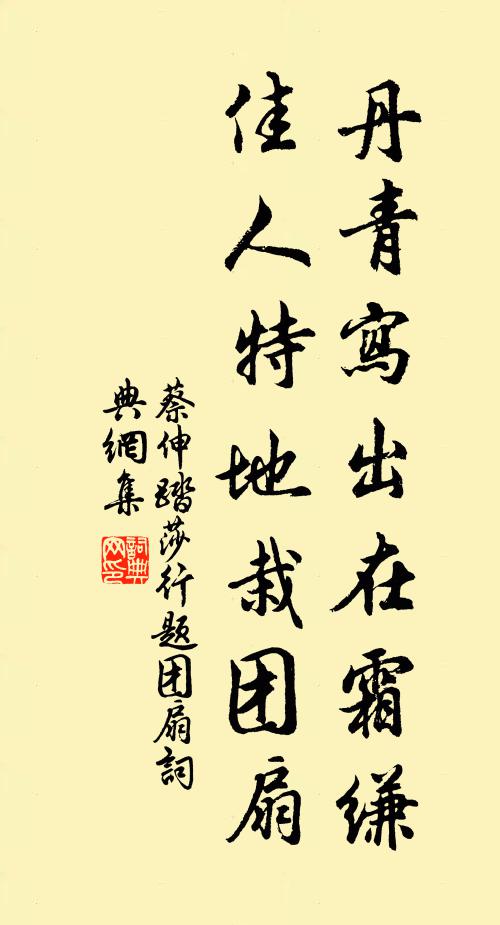 丹青寫出在霜縑
佳人特地栽团扇
蔡伸踏莎行题团扇詞
典網集
詞典
网印